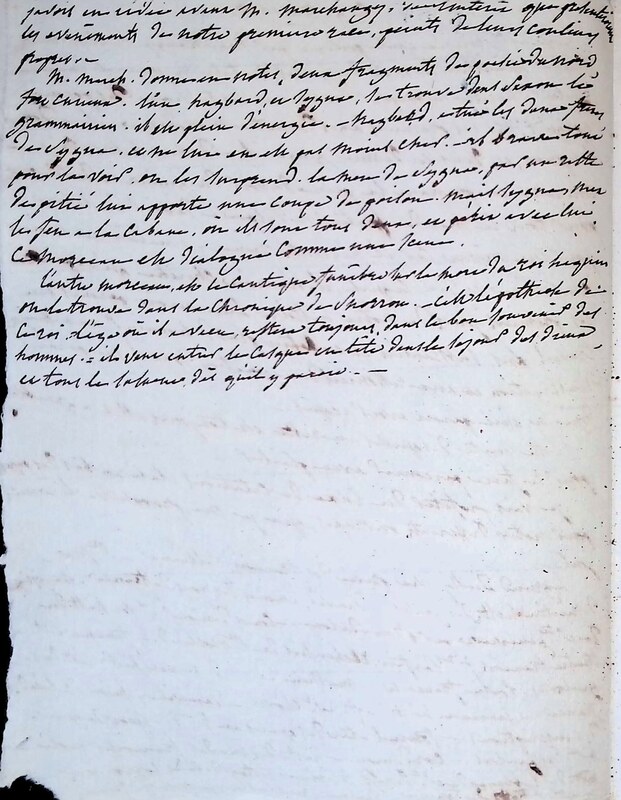 j'avois eu l'idée avant M. Marchangy, de l'intérêt que présenteroient
les evénements de notre premiere race, peints de leurs couleurs
propres. —
M. March. donne en notes, deux fragments de poésie du nord
fort curieux. l'un, hagbard, et sygne, se trouve dans Saxon le
grammairien. il est plein d'énergie. — hagbard, a tué les deux freres
de sygne, et ne lui en est pas moins cher. il brave tout
pour la voir, on les surprend. la mere de sygne, par un reste
de pitié lui apporte une coupe de poison. mais sygne, met
le feu a la cabane, où ils sont tous deux, et périt avec lui
Ce morceau est dialogué comme une scene.
L'autre morceau, est le cantique funébre sur la mort du roi haquin
on le trouve dans la chronique de Snorron. — C'est l'apothéose de
ce roi. l'âge où il a vécu, restera toujours, dans le bon souvenir des
hommes. = il veut entrer le casque en tête dans le séjour des dieux,
et tous le saluent dès qu'il y paroit. —